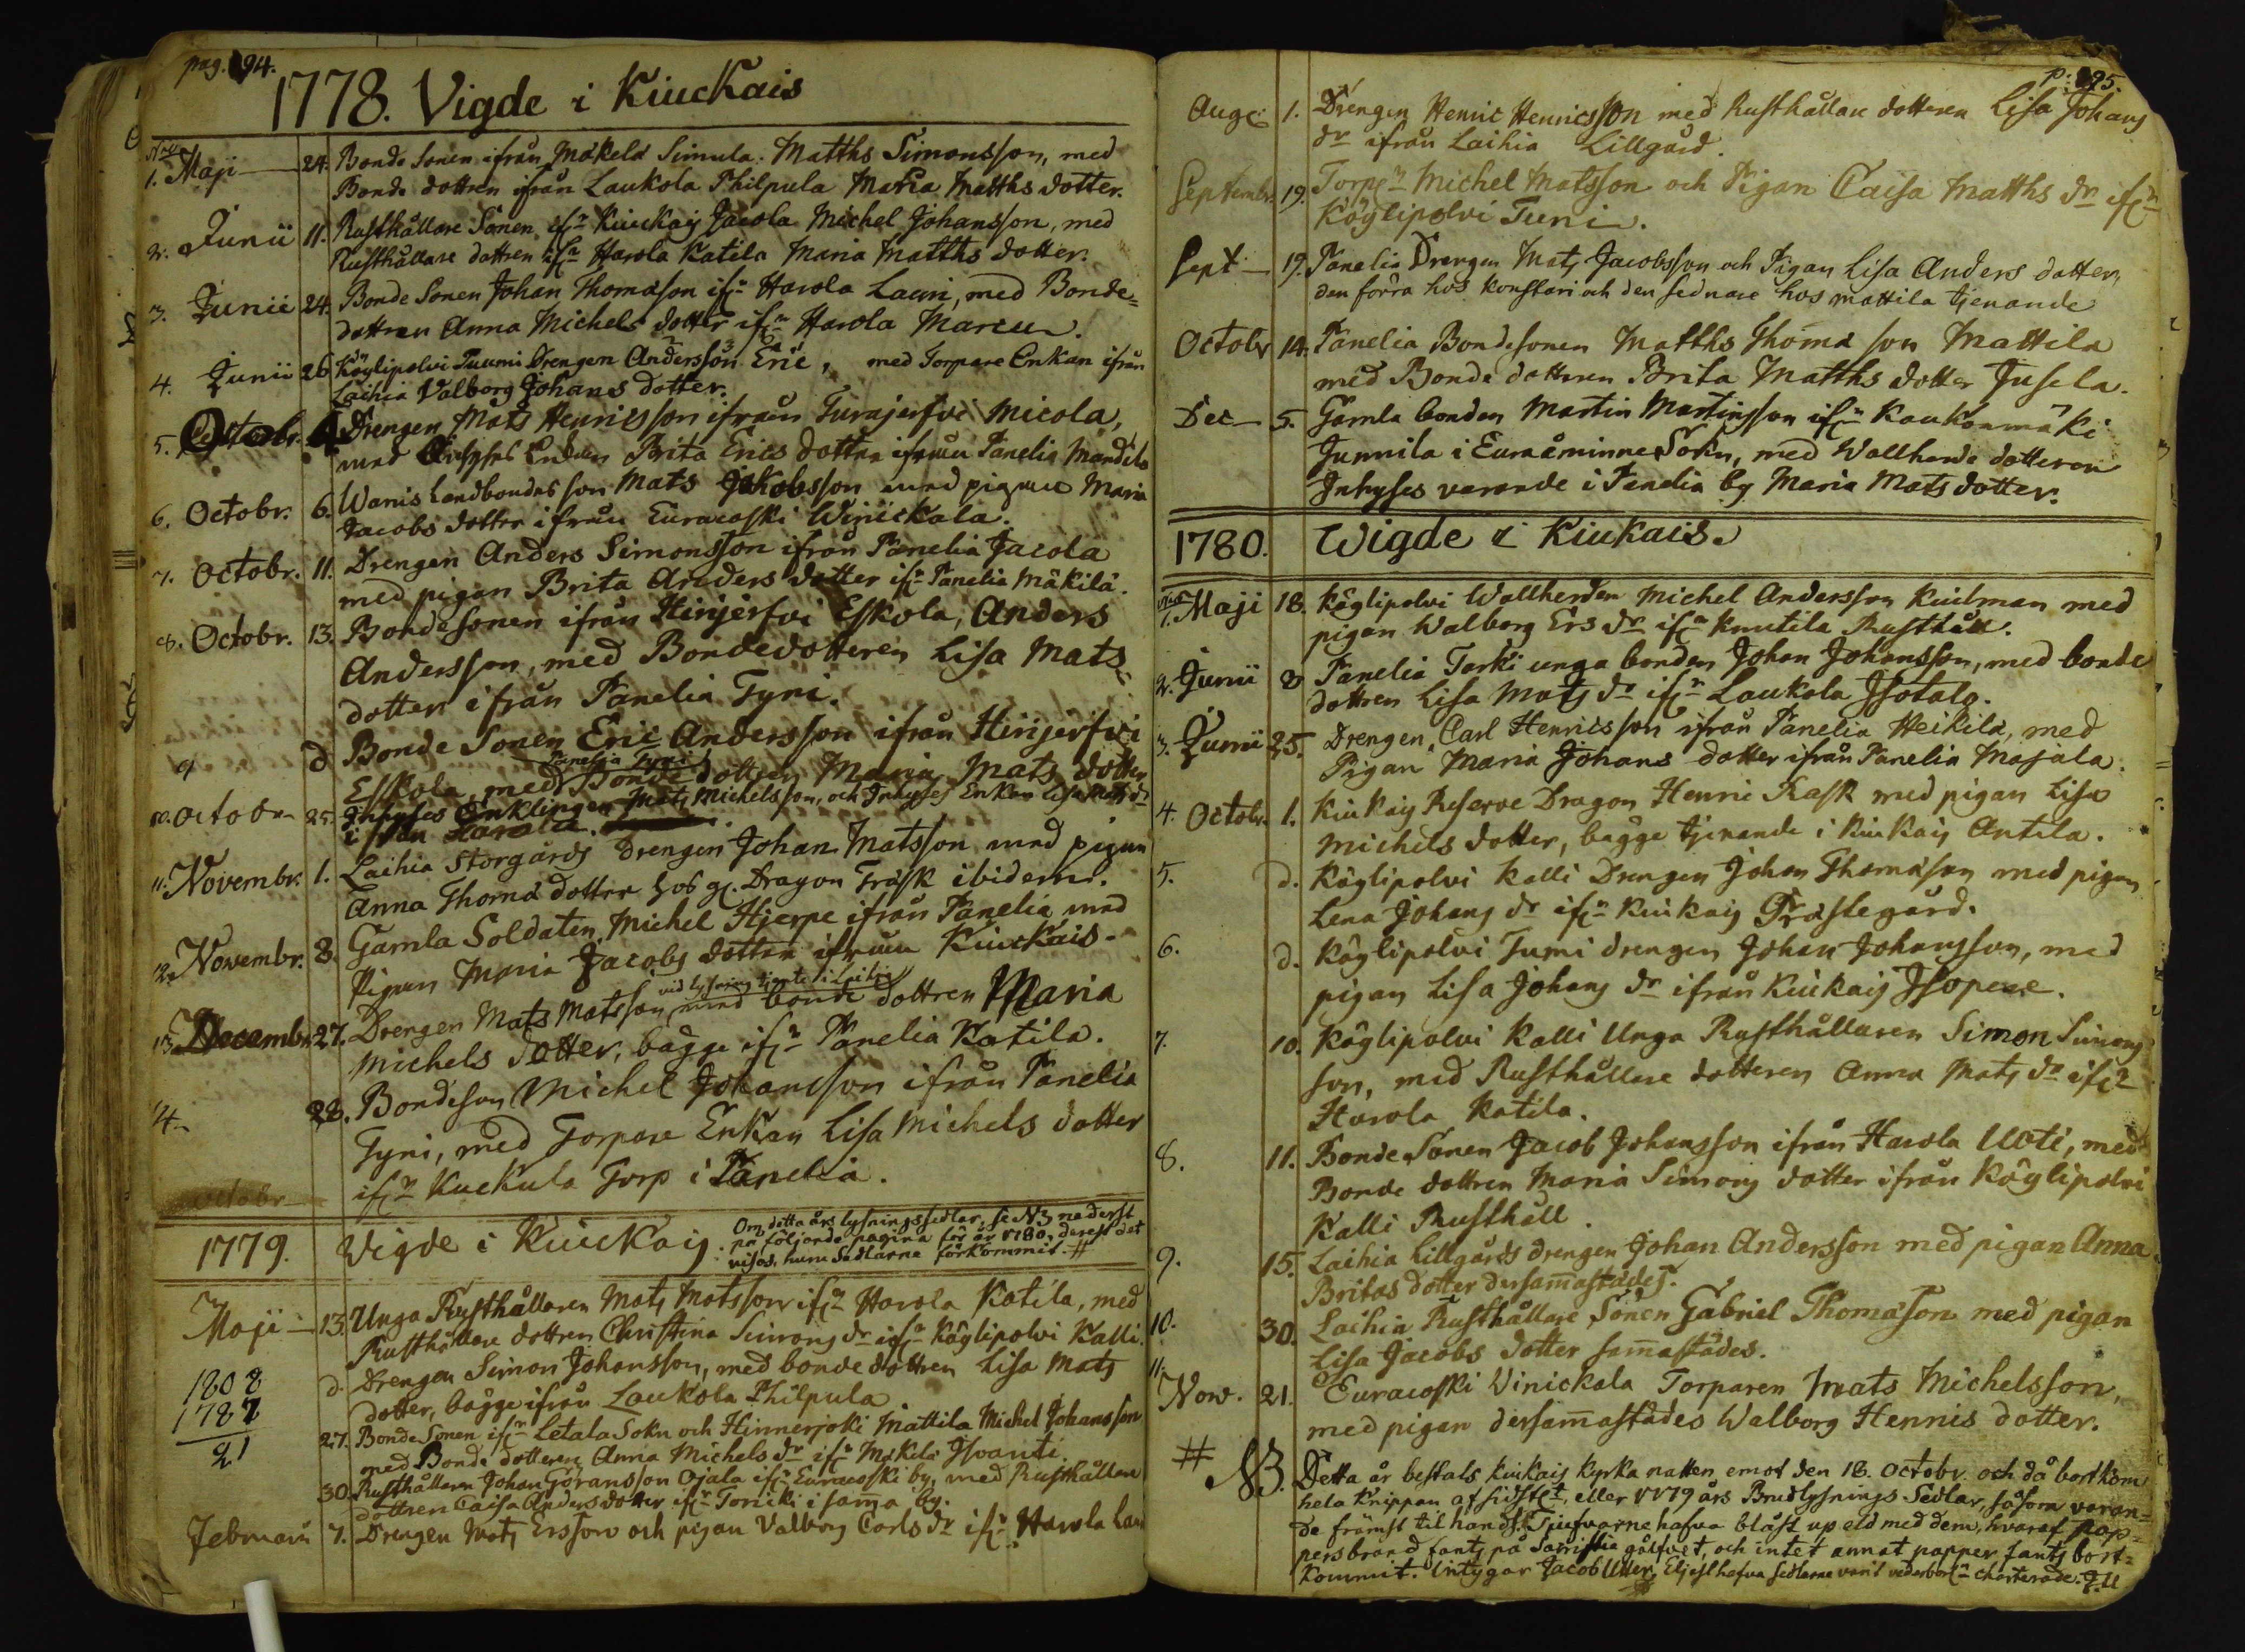 pag. 94.
1778. Vigde i Kiuckais
Nro
1. Maji 24. Bonde Sonen ifrån Mäkelä Simula. Matths Simonsson, med
Bonde dottren ifrån Laukola Philpula Maria Matths dotter.
2. Junii 11. Rusthållare Sonen ifrn Kiuckais Jacola Michel Johansson, med
Rusthållare dottren ifrn Harola Katila Maria Matths dotter.
3. Junii 24. Bonde Sonen Johan Thomasson ifrn Harola Lauri, med Bonde=
dottren Anna Michels dotter ifrn Harola Marcu.
4. Junii 26 Köylipolvi Tuumi Drengen Andersson Eric, med Torpare Enkan ifrån
Laihia Valborg Johans dotter.
5. Octobr. 4. Drengen Mats Henricsson ifrån Turajerfvi Micola,
med Inhyses Enkan Brita Erics dotter ifrån Panelia Mandila
6. Octobr. 6. Wanis Landbondes son Mats Jakobsson med pigan Maria
Jacobs dotter ifrån Euracoski Winickala.
7. Octobr. 11. Drengen Anders Simonsson ifrån Panelia Jacola
med pigan Brita Anders dotter ifrn Panelia Mäkilä.
8. Octobr. 13. Bondesonen ifrån Hinjerfvi Eskola, Anders
Andersson, med Bondedotteren Lisa Mats=
dotter ifrån Panelia Tyni.
9 d Bonde Sonen Eric Andersson ifrån Hinjerfvi
Panelia Tyni
Eskola, med Bonde dottren Maria Mats dotter
10. Octobr 25. Inhyses Enklingen Mats Michelsson, och Inhyses Enkan Lisa Mats dr
ifrån Harola.
11. Novembr. 1. Laihia Storgårds Drengen Johan Matsson med pigan
Anna Thoma dotter hos gl. Dragon Frask ibidem.
12. Novembr. 8. Gamla Soldaten Michel Hjerpe ifrån Panelia med
Pigan Maria Jacobs dotter ifrån Kiuckais.
vid lysning tjente i Laihia
13. Decembr. 27. Drengen Mats Matsson med bonde dottren Maria
Michels dotter, bägge ifrn Panelia Katila.
14. 28. Bondeson Michel Johansson ifrån Panelia
Tyni, med Torpare Enkan Lisa Michels dotter
ifrn Kuckula Torp i Panelia.
octobr
1779. Vigde i Kiuckais
Om detta års lysningssedlar, se NB nederst
på följande pagina för år 1780, derest det
vises, huru Sedlarne förkommit. #
Maji 13. Unga Rusthållaren Mats Matsson ifrn Harola Katila, med
Rusthållare dottren Christina Simons dr ifrn Köylipolvi Kalli.
d. Drengen Simon Johansson, med bonde dottren Lisa Mats
dotter, bägge ifrån Laukola Philpula
1808
1787
21
27. Bonde Sonen ifrn Letala Sokn och Hinnerjoki Mattila Michel Johansson
med Bonde dotteren Anna Michels dr ifrn Mäkelä Isvanti.
30. Rusthållaren Johan Göransson Ojala ifrn Euracoski by, med Rusthållare
dottren Caisa Anders dotter ifrn Toricki i samma by.
Februari 7. Drengen Mats Ersson och pigan Valborg Carls dr ifrn Harola Lau
p: 95.
Aug: 1. Drengen Henric Henricsson med Rusthållare dotteren Lisa Johans
dr ifrån Laihia Lillgård.
Septembr. 19. Torpn Michel Matsson och Pigan Caisa Matths dr ifrn
Köylipolvi Tuni.
Sept 19. Panelia Drengen Mats Jacobsson och Pigan Lisa Anders dotter,
den förra hos Konstari och den sednare hos Mattila tjenande
Octobr 14. Panelia Bondesonen Matths Thomasson Mattila
med Bonde dotteren Brita Matths dotter Jusela.
Dec 5. Gamla bonden Martin Martinsson ifrn Kaukonmäki
Junnila i Euraåminne Sokn, med Wallherde dotteren
Inhyses varande i Panelia by Maria Mats dotter.
1780. Wigde i Kiukais.
Nro
1. Maji 18. Köylipolvi Wallherden Michel Andersson Kiulman med
pigan Walborg Ers dr ifrn Knutila Rusthåll.
2. Junii 8 Panelia Tarki unga bonden Johan Johansson, med bonde
dottren Lisa Mats dr ifrn Laukola Isotalo.
3. Junii 25. Drengen Carl Henricsson ifrån Panelia Heikila, med
Pigan Maria Johans dotter ifrån Panelia Majala.
4. Octobr. 1. Kiukais Reserve Dragon Henric Rask med pigan Lisa
Michels dotter, bägge tjenande i Kiukais Antila.
5. d. Köylipolvi Kalli Drengen Johan Thomasson med pigan
Lena Johans dr ifrn Kiukais Prästegård.
6. d. Köylipolvi Tumi drengen Johan Johansson, med
pigan Lisa Johans dr ifrån Kiukais Isopere.
7. 10. Köylipolvi Kalli Unga Rusthållaren Simon Simons
son, med Rusthållare dotteren Anna Mats dr ifrn
Harola Katila.
8. 11. Bonde Sonen Jacob Johansson ifrån Harola Uoti, med
Bonde dottren Maria Simons dotter ifrån Köylipolvi
Kalli Rusthåll.
9. 15. Laihia Lillgårds drengen Johan Andersson med pigan Anna
Britas dotter dersammastädes.
10. 30. Laihia Rusthållare Sonen Gabriel Thomasson med pigan
Lisa Jacobs dotter sammastädes.
11. Nov. 21. Euracoski Winickala Torparen Mats Michelsson,
med pigan dersammastädes Walborg Henrics dotter.
# NB. Detta år bestals Kiukais Kyrka natten emot den 18. Octobr. och då bortkom
hela Knippan af sidstet, eller 1779 års Brudlysnings Sedlar, såsom varan=
de främst til hands. Tjufvarne hafva blåst up eld med dem, hvaraf pap=
persbrand fants på Sacristia gålfvet, och intet annat papper fants bort=
kommit. Intygar Jacob Uller. Eljest hafva sedlarne varit vederbörln charterade. J.U